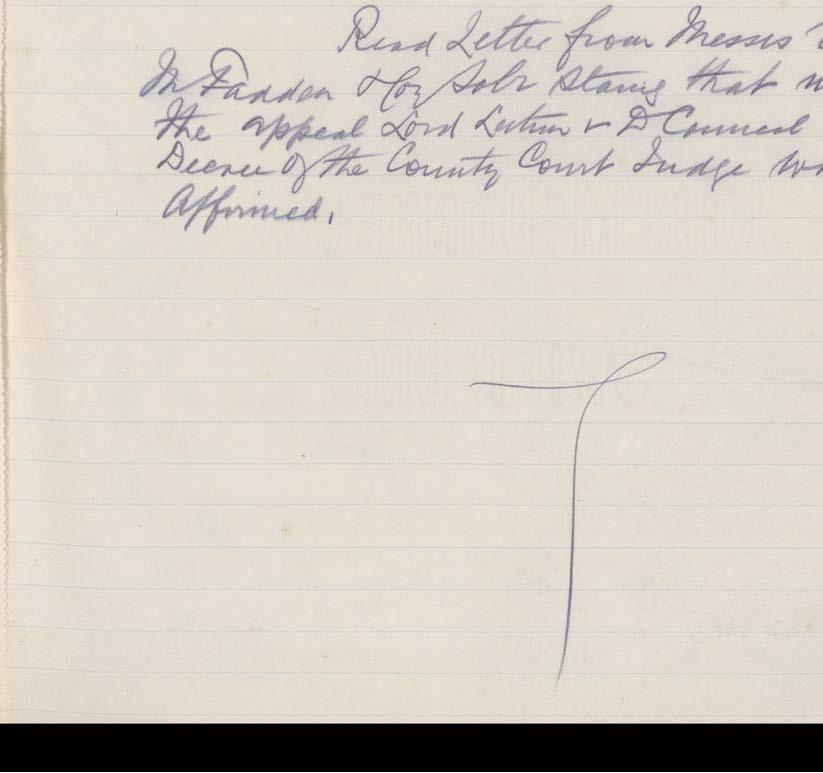 Read Letter from Messrs
McFadden & Coy Solr Stating that
the appeal Lord Leitrim v D Council
Decree of the County Court Judge
Affirmed.